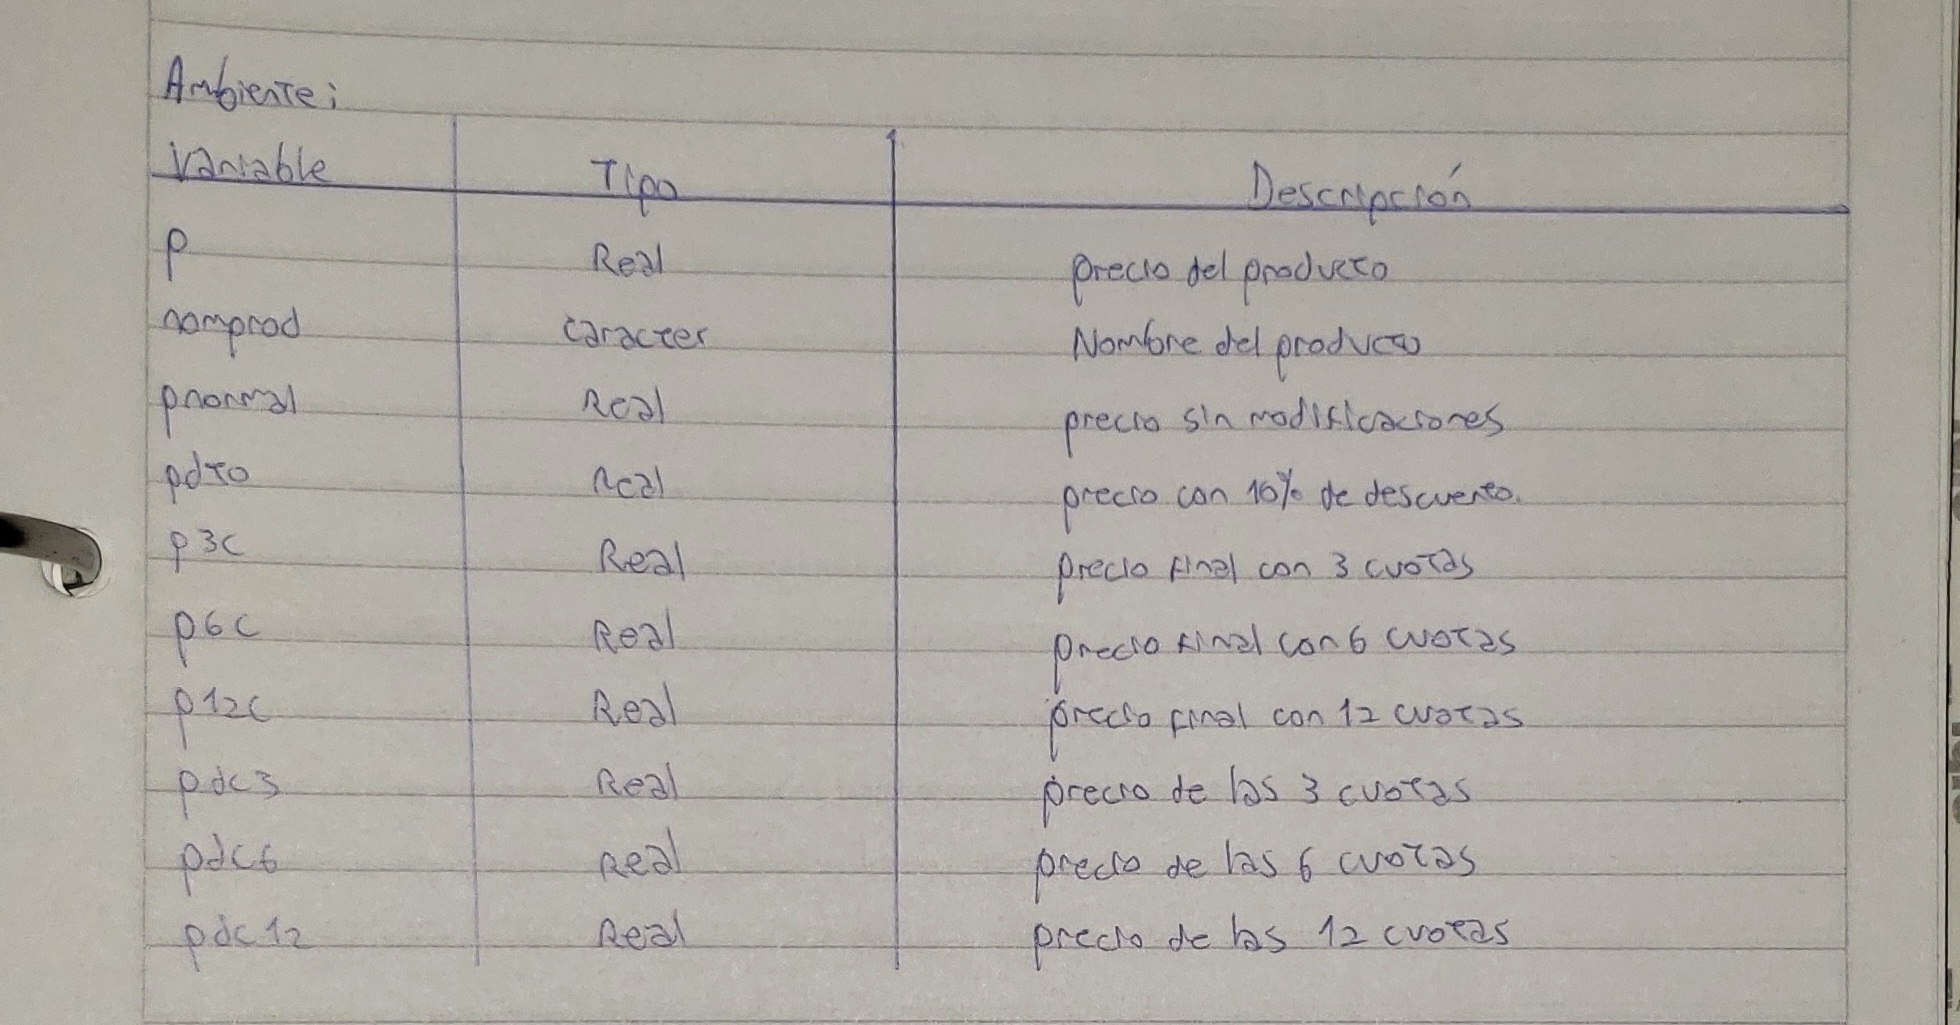 Ambiente:
Variable Tipo Descripción
p Real precio del producto
nomprod caracter Nombre del producto
pnormal Real precio sin modificaciones
pdto Real precio con 10% de descuento.
p3c Real precio final con 3 cuotas
p6c Real precio final con 6 cuotas
p12c Real precio final con 12 cuotas
pdc3 Real precio de las 3 cuotas
pdc6 Real precio de las 6 cuotas
pdc12 Real precio de las 12 cuotas